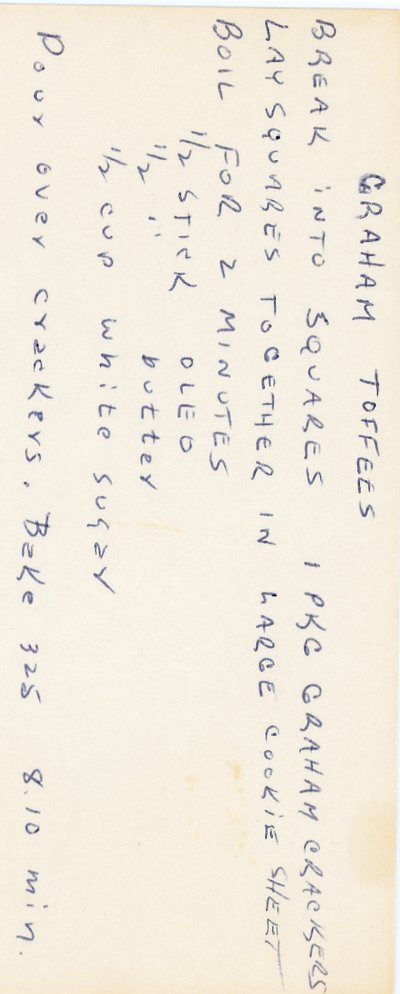 GRAHAM TOFFEES
BREAK INTO SQUARES 1 PKG GRAHAM CRACKERS
LAY SQUARES TOGETHER IN LARGE COOKIE SHEET
BOIL FOR 2 MINUTES
1/2 STICK OLEO
1/2 " butter
1/2 cup white sugar
Pour over crackers. Bake 325 8.10 min.